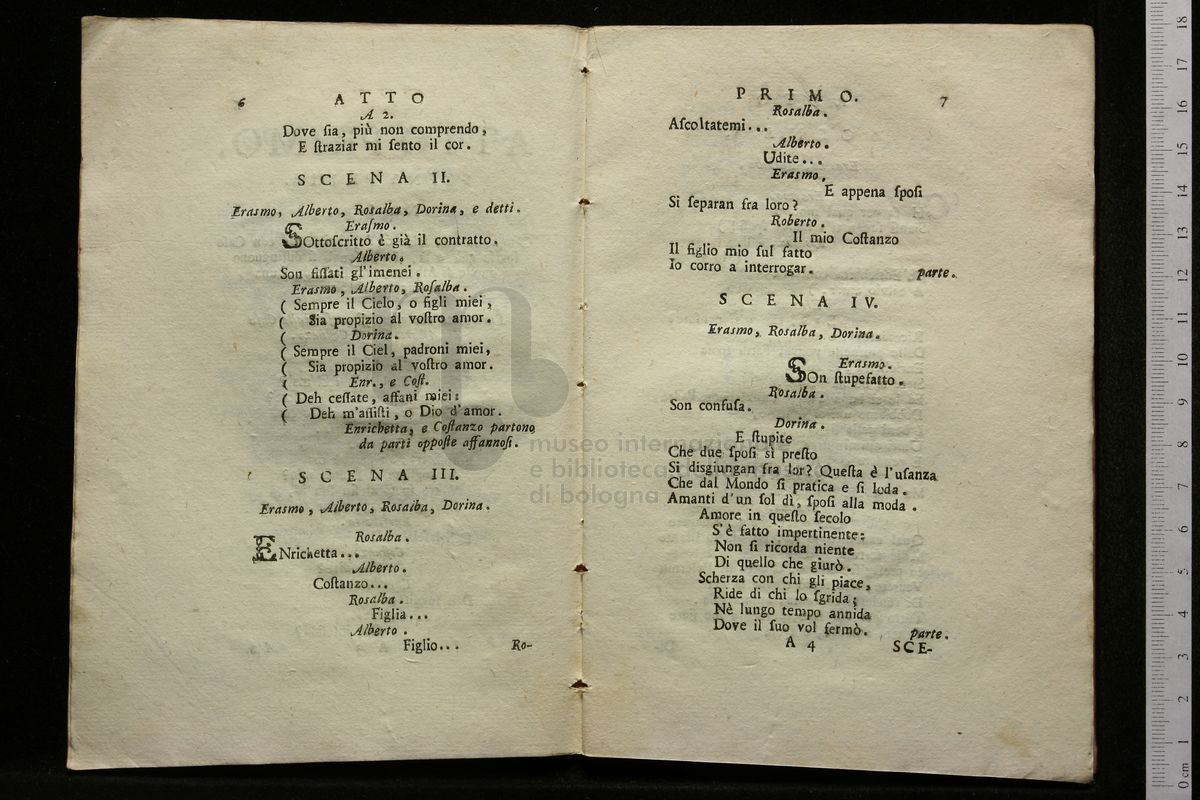 6 ATTO
A 2.
Dove ſia, più non comprendo,
E ſtraziar mi ſento il cor.
SCENA II.
Erasmo, Alberto, Rosalba, Dorina, e detti.
Eraſmo.
SOttoſcritto è già il contratto.
Alberto.
Son fiſſati gl'imenei.
Erasmo, Alberto, Roſalba.
( Sempre il Cielo, o figli miei,
( Sia propizio al voſtro amor.
( Dorina.
( Sempre il Ciel, padroni miei,
( Sia propizio al voſtro amor.
( Enr., e Coſt.
( Deh ceſſate, affani miei:
( Deh m'aſſiſti, o Dio d'amor.
Enrichetta, e Coſtanzo partono
da parti oppoſte affannoſi.
SCENA III.
Erasmo, Alberto, Rosalba, Dorina.
Rosalba.
ENrichetta...
Alberto.
Coſtanzo...
Rosalba.
Figlia...
Alberto.
Figlio... Ro-
PRIMO. 7
Rosalba.
Aſcoltatemi...
Alberto.
Udite...
Erasmo.
E appena ſpoſi
Si ſeparan fra loro?
Roberto.
Il mio Coſtanzo
Il figlio mio ſul fatto
Io corro a interrogar. parte.
SCENA IV.
Erasmo, Rosalba, Dorina.
Erasmo.
SOn ſtupefatto.
Rosalba.
Son confuſa.
Dorina.
E ſtupite
Che due ſpoſi sì preſto
Si disgiungan fra lor? Queſta è l'uſanza
Che dal Mondo ſi pratica e ſi loda.
Amanti d'un ſol dì, ſpoſi alla moda.
Amore in queſto ſecolo
S'è fatto impertinente:
Non ſi ricorda niente
Di quello che giurò.
Scherza con chi gli piace,
Ride di chi lo ſgrida;
Nè lungo tempo annida
Dove il ſuo vol fermò. parte.
A 4 SCE-
museo internazionale
e biblioteca
di bologna
0 cm 1 2 3 4 5 6 7 8 9 10 11 12 13 14 15 16 17 18